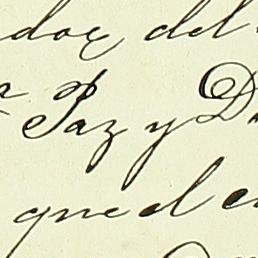 doz del
Paz y D
que el e